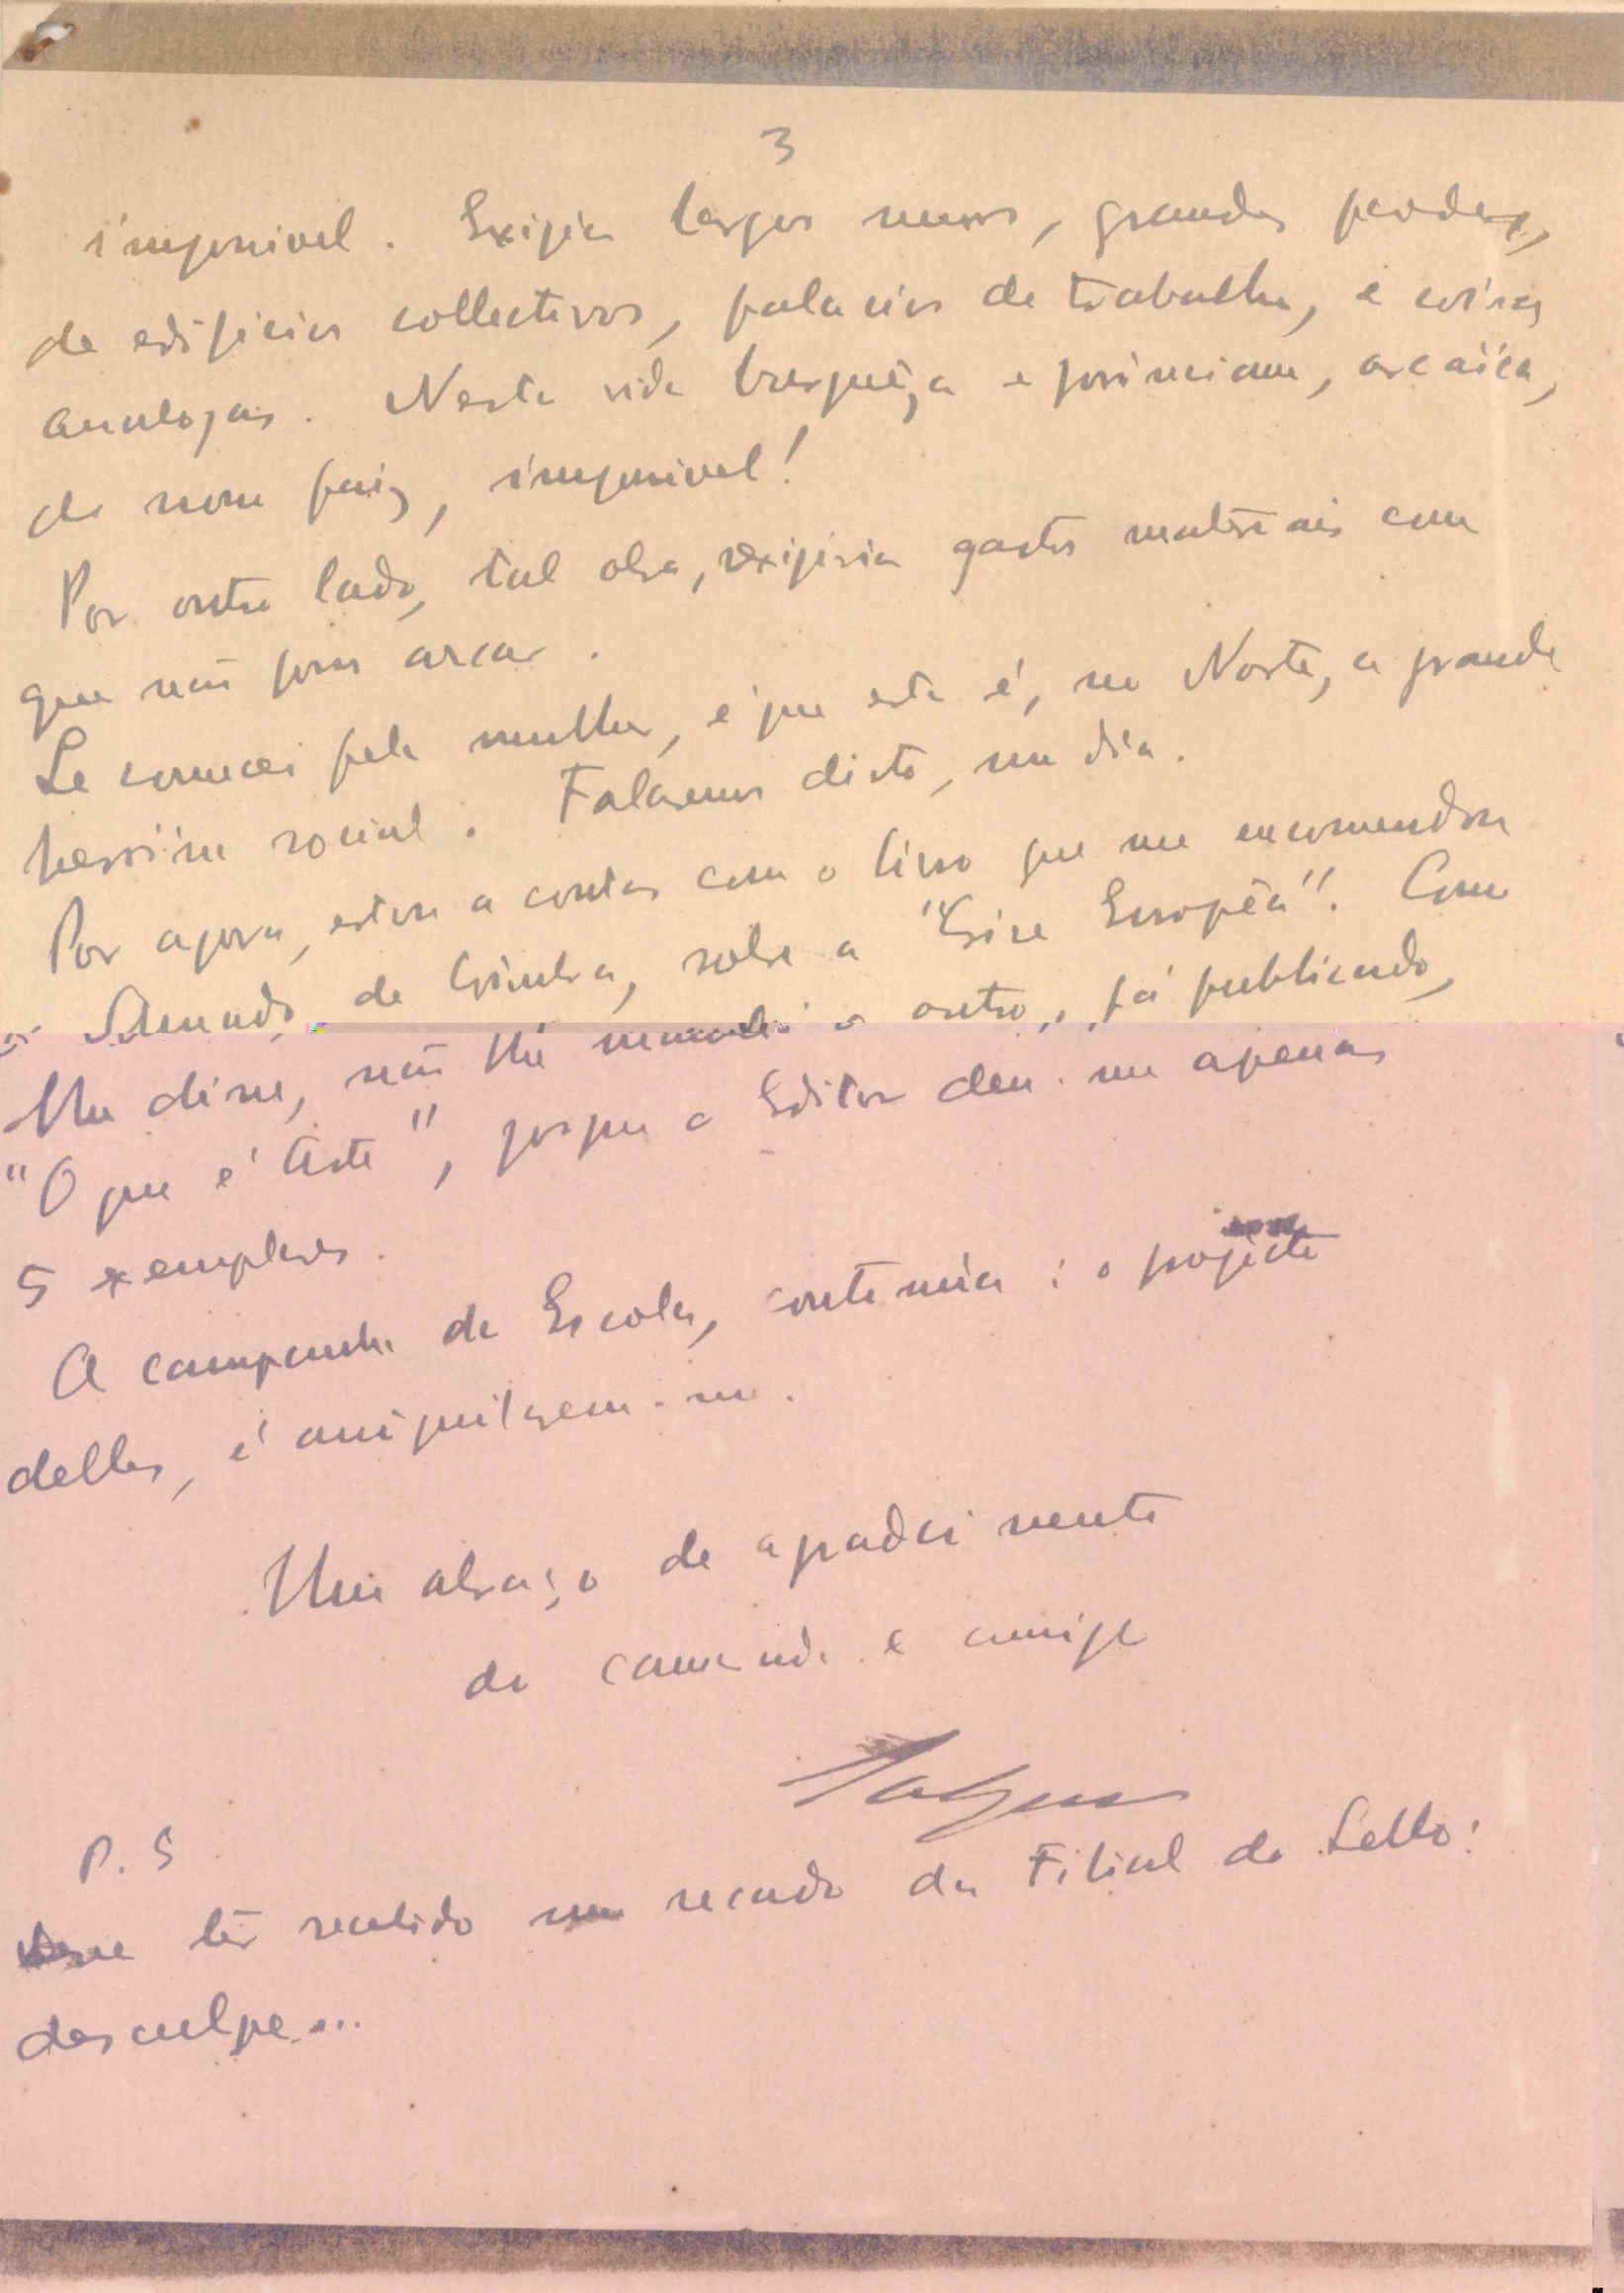 3
impossivel. Exigia largos muros, grandes paredes,
de edificios collectivos, palacios de trabalho, e coisas
analogas. Nesta vida burguêsa e provinciana, arcaica,
do nosso paiz, impossivel!
Por outro lado, tal obra, exigiria gastos materiais com
que não posso arcar.
Se comecei pela mulher, é que esta é, no Norte, a grande
heroina social. Falaremos disto, um dia.
Por agora, estou a contas com o livro que me encomendou
o Saraiva, de Coimbra, sobre a "Crise Européa". Como
lhe disse, não lhe mandei o outro, já publicado,
"O que é Arte", porque o Editor deu-me apenas
5 exemplares.
A campanha da Escola, continúa: o projecto
delles, é aniquilarem-me.
Um abraço de agradecimento
do camarada e amigo
P.S.
Deve têr recebido um recado da Filial do Lello:
desculpe...